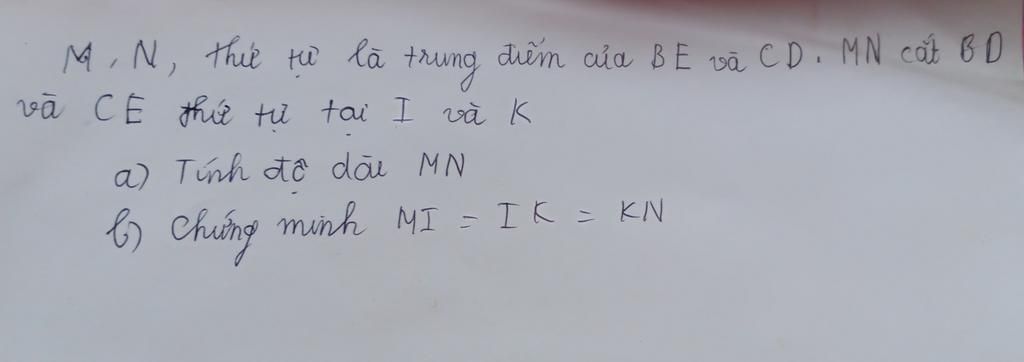 M, N, thứ tự là trung điểm của BE và CD. MN cắt BD
và CE thứ tự tại I và K
a) Tính độ dài MN
b) Chứng minh MI = IK = KN